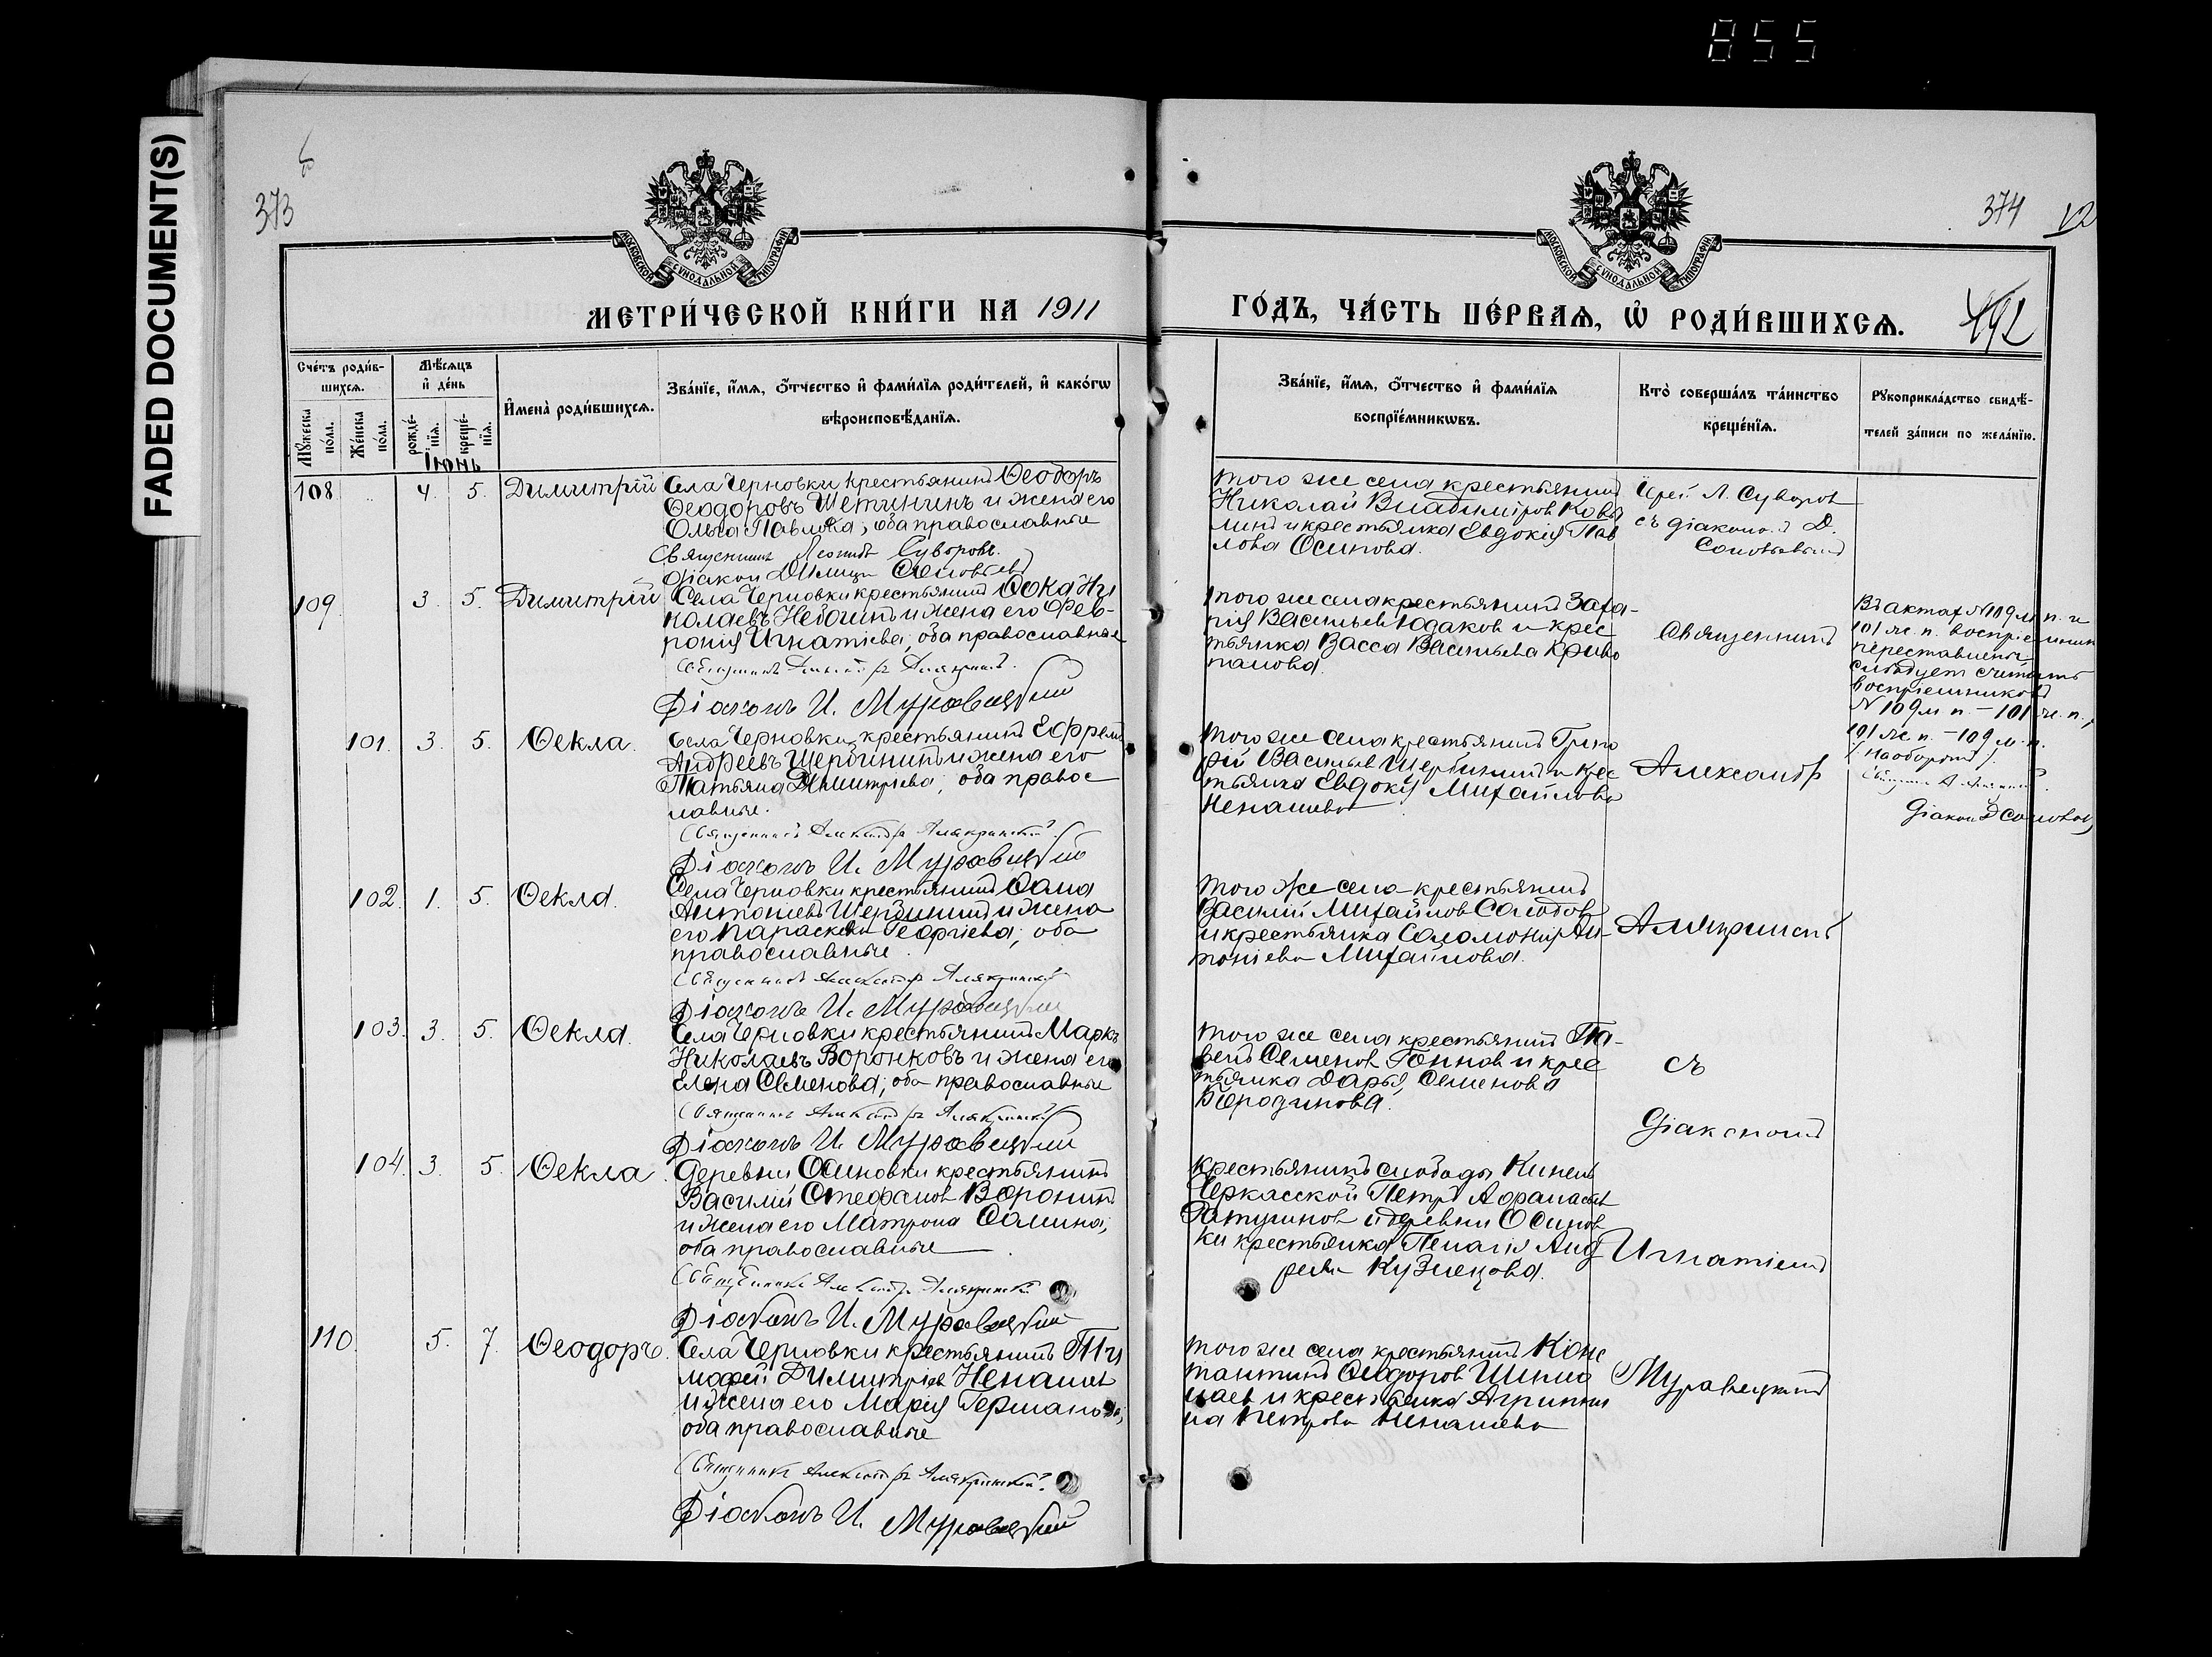 855
FADED DOCUMENT(S)
373
374
12
МОСКОВСКОЙ СѴНОДАЛЬНОЙ ТИПОГРАФІИ
МОСКОВСКОЙ СѴНОДАЛЬНОЙ ТИПОГРАФІИ
МЕТРИ́ЧЕСКОЙ КНИ́ГИ НА 1911
ГО́ДЪ, ЧА́СТЬ ПЕ́РВАѦ, Ѡ҆ РОДИ́ВШИХСѦ.
Сче́тъ роди́в-
шихсѧ.
Мѣ́сѧцъ
и҆ де́нь
И҆мена̀ роди́вшихсѧ.
Зва́нїе, и҆́мѧ, ѻ҆́тчество и҆ фами́лїѧ роди́телей, и҆ како́гѡ
вѣроисповѣ́данїѧ.
Мꙋ́жеска
по́ла.
Же́нска
по́ла.
рожде́-
нїѧ.
креще́-
нїѧ.
Іюнь
Зва́нїе, и҆́мѧ, ѻ҆́тчество и҆ фами́лїѧ
воспрїе́мникѡвъ.
Кто̀ соверша́лъ та́инство
креще́нїѧ.
Рꙋкоприкла́дство свидѣ́-
телей за́писи по жела́нїю.
108 4. 5. Димитрій
Села Черновки крестьянинъ Ѳеодоръ
Ѳеодоровъ Щетининъ и жена его
Ольга Павлова, оба православные
Священникъ Леонидъ Суворовъ.
Діаконъ Соловьевъ
того же села крестьянинъ
Николай Владиміров
и крестьянка Евдокія Пав
лова Осипова.
Іерей Л. Суворов
съ діакономъ Д.
Соловьевымъ
109. 3. 5. Димитрій
Села Черновки крестьянинъ Ѳока Ни
колаевъ и жена его Фев-
ронія Игнатіева, оба православные
Діаконъ И. Муравицкій
того же села крестьянинъ Заха-
рія Васильев Юдаков и крес
тьянка Васса Васильева
Священникъ
Въ актах № 109 м. п. и
101 ж. п. воспріемники
переставлены,
слѣдуетъ считать
воспріемниковъ
№ 109 м. п. – 101 ж. п.,
101 ж. п. – 109 м. п.
/наоборотъ/.
Діакон Д Соловьев
101. 3. 5. Ѳекла.
Села Черновки крестьянинъ Ефрем
Андреевъ Щербининъ и жена его
Татьяна Димитріева, оба правос
лавные.
Священникъ Александръ Алякринскій
Діаконъ И. Муравицкій
того же села крестьянинъ Григо
рій Васильев Щербининъ и крес
тьянка Евдокія Михайлова
Ненашева
Александръ
102. 1. 5. Ѳекла.
Села Черновки крестьянинъ Ѳома
Антоніевъ Щербининъ и жена
его Параскева Георгіева, оба
православные.
Священникъ Александръ Алякринскій
Діаконъ И. Муравицкій
того же села крестьянинъ
Василій Михайлов Солодов
и крестьянка Соломонія Ан-
тоніева Михайлова.
Алякринскій
103. 3. 5. Ѳекла.
Села Черновки крестьянинъ Маркъ
Николаевъ Воронковъ и жена его
Елена Семенова, оба православные
Священникъ Александръ Алякринскій
Діаконъ И. Муравицкій
того же села крестьянинъ Па-
велъ Семенов и крес
тьянка Дарья Семенова
Бородинова.
съ
діакономъ
104. 3. 5. Ѳекла.
Деревни Осиновки крестьянинъ
Василій Стефанов Воронинъ
и жена его Матрона Ѳомина,
оба православные
Священникъ Александръ Алякринскій
Діаконъ И. Муравицкій
крестьянинъ слободы Кинель
Черкасской Петръ Афанасьев
и деревни Осинов
ки крестьянка Пелагія Анд
реева Кузнецова.
Игнатіемъ
110. 5. 7. Ѳеодоръ.
Села Черновки крестьянинъ Ти
мофей Димитріев Ненашев
и жена его Марія Германова,
оба православные
Священникъ Александръ Алякринскій.
Діаконъ И. Муравицкій
того же села крестьянинъ Конс
тантинъ Ѳеодоров
и крестьянка Агриппи
на Петрова Ненашева
Муравицкимъ